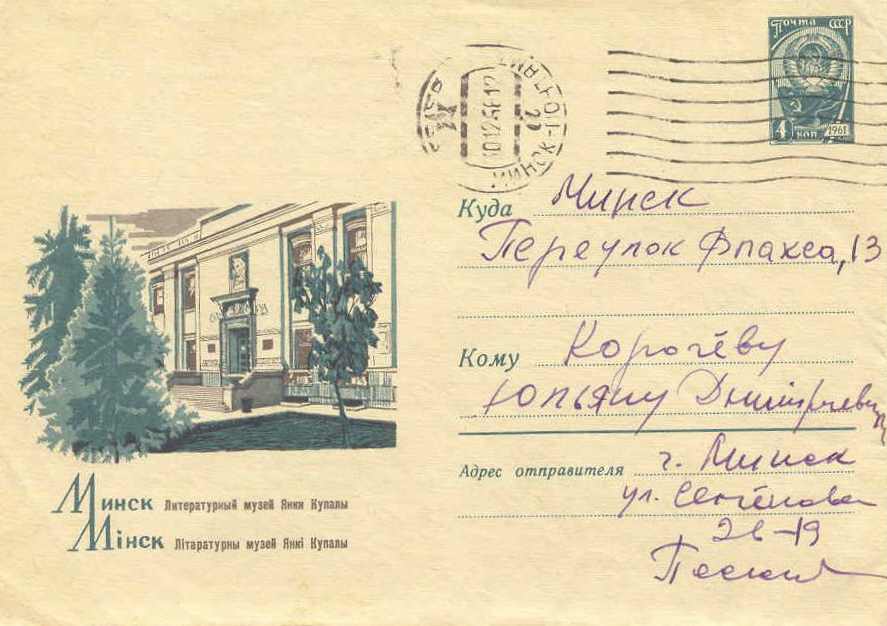 Почта СССР
4 коп 1961
101256812
МИНСК-ПО
Куда Минск
Переулок Флакса, 13
Кому Корочёву
Юльяну
Адрес отправителя г. Минск
ул.
26-19
Минск Литературный музей Янки Купалы
Мінск Літаратурны музей Янкі Купалы